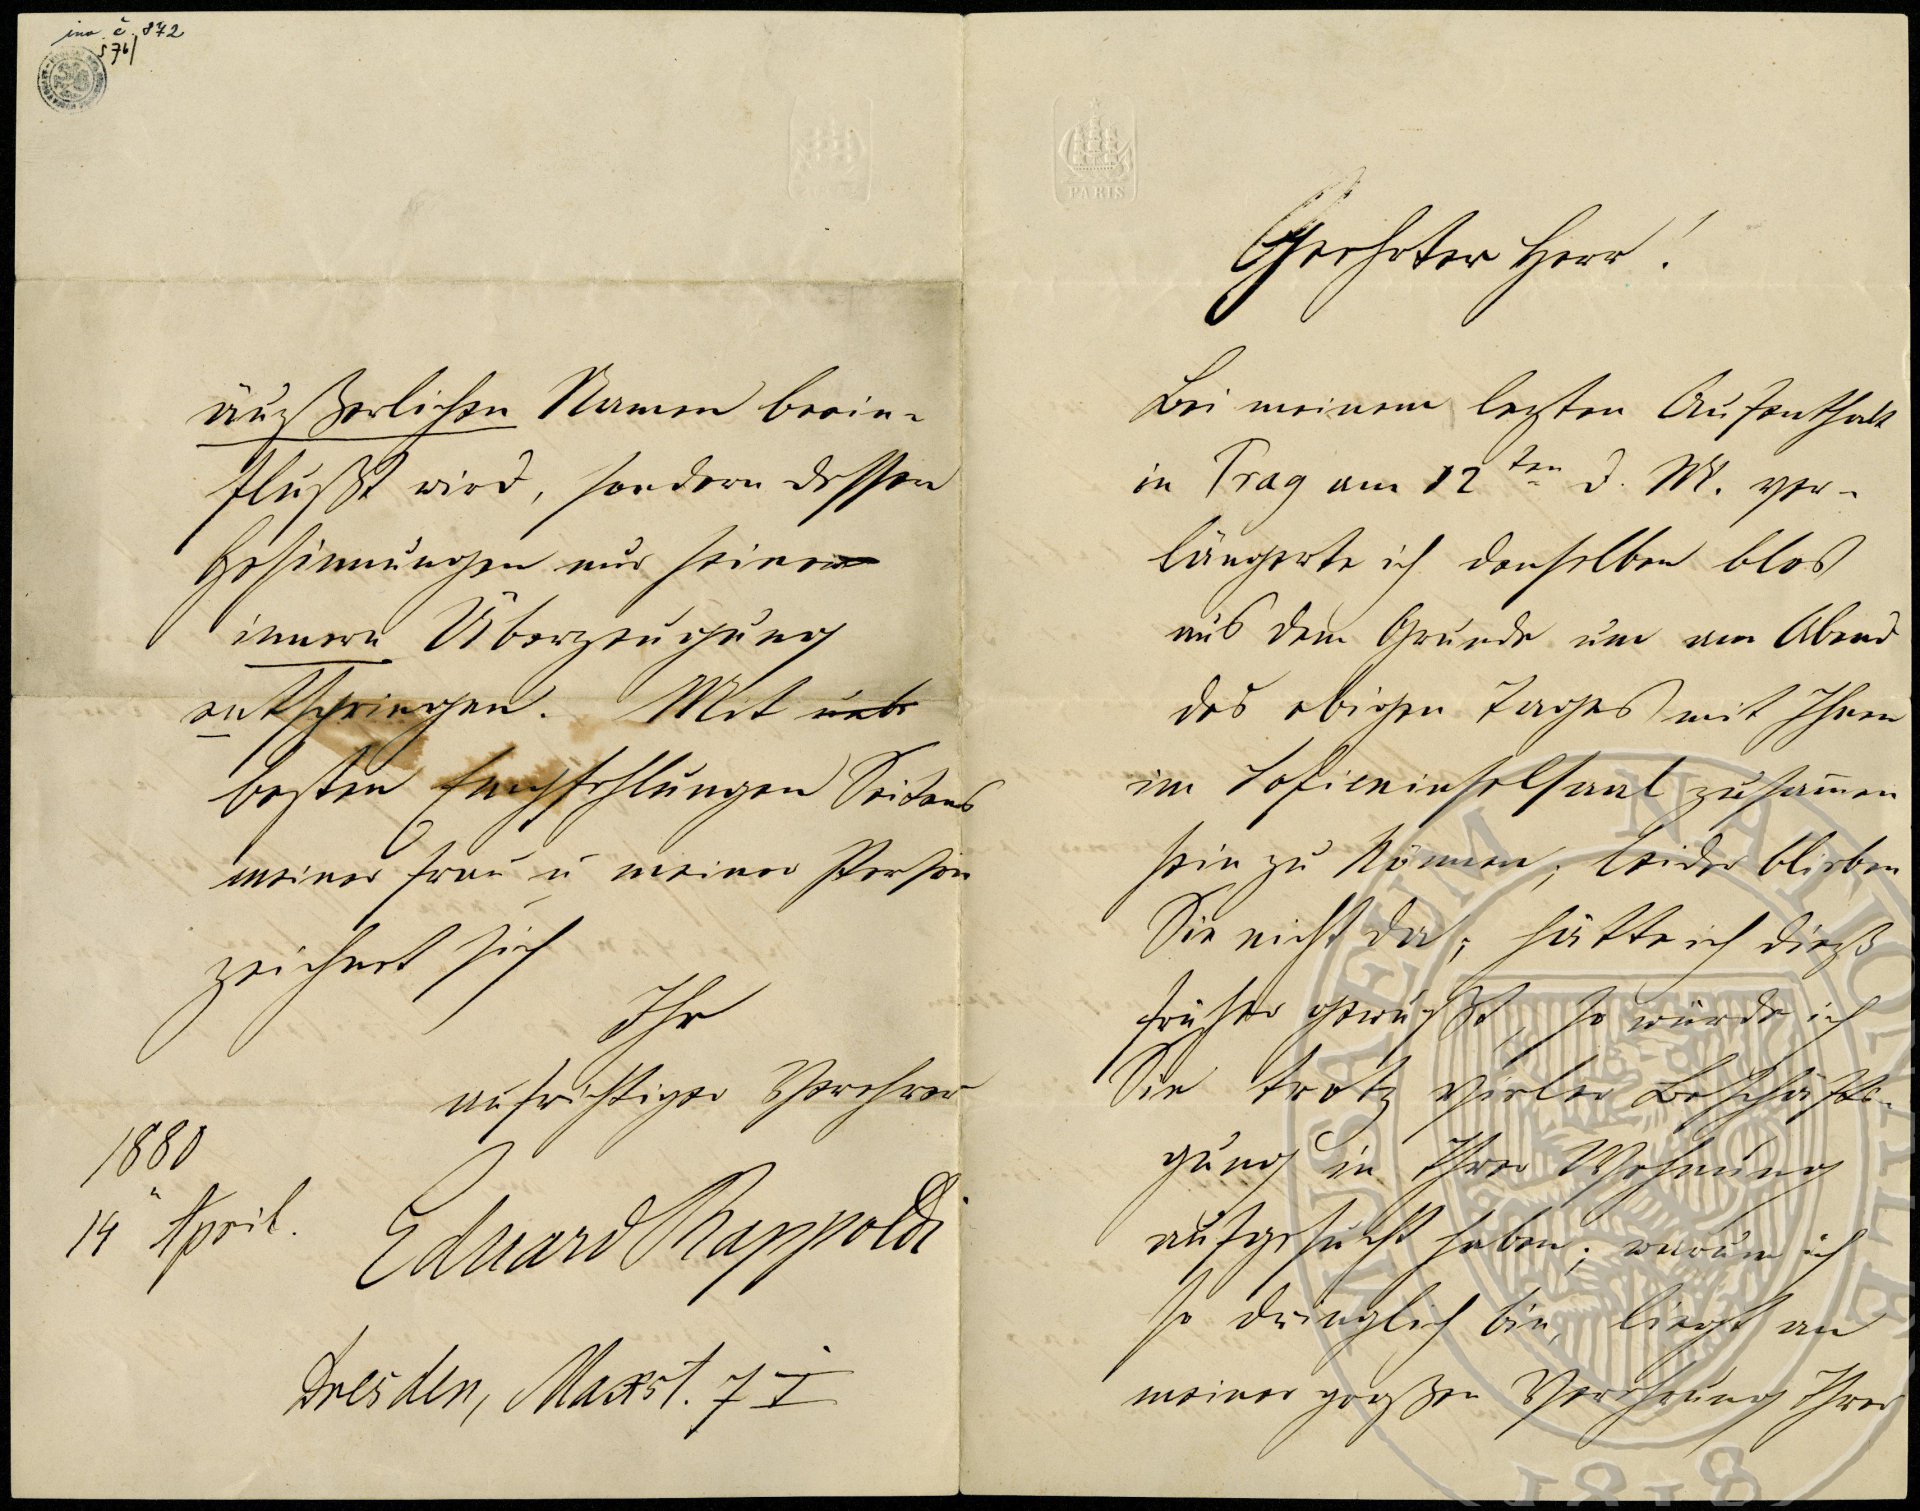 inv. č. 872
576/
äußerlichen Namen beein-
flußt wird, sondern dessen
Gesinnungen nur seiner
innern Überzeugung
entspringen. Mit
besten Empfehlungen Seitens
meiner Frau u meiner Person
zeichnet sich
Ihr
aufrichtiger Verehrer
1880
14 April.
Eduard Rappoldi
Dresden, Maxst. 7 I
PARIS
Geehrter Herr!
Bei meinem lezten Aufenthalt
in Prag am 12ten d. M. ver-
längerte ich denselben blos
aus dem Grunde um am Abend
des obigen Tages mit Ihnen
im Sofieninselsaal zusammen
sein zu können; leider blieben
Sie nicht da; hätte ich dieß
früher gewußt, so würde ich
Sie trotz vieler Beschäfti-
gung in Ihrer Wohnung
aufgesucht haben; warum ich
so dringlich bin, liegt an
meiner großen Verehrung Ihrer
MUSAEUM NATIONALE
1818